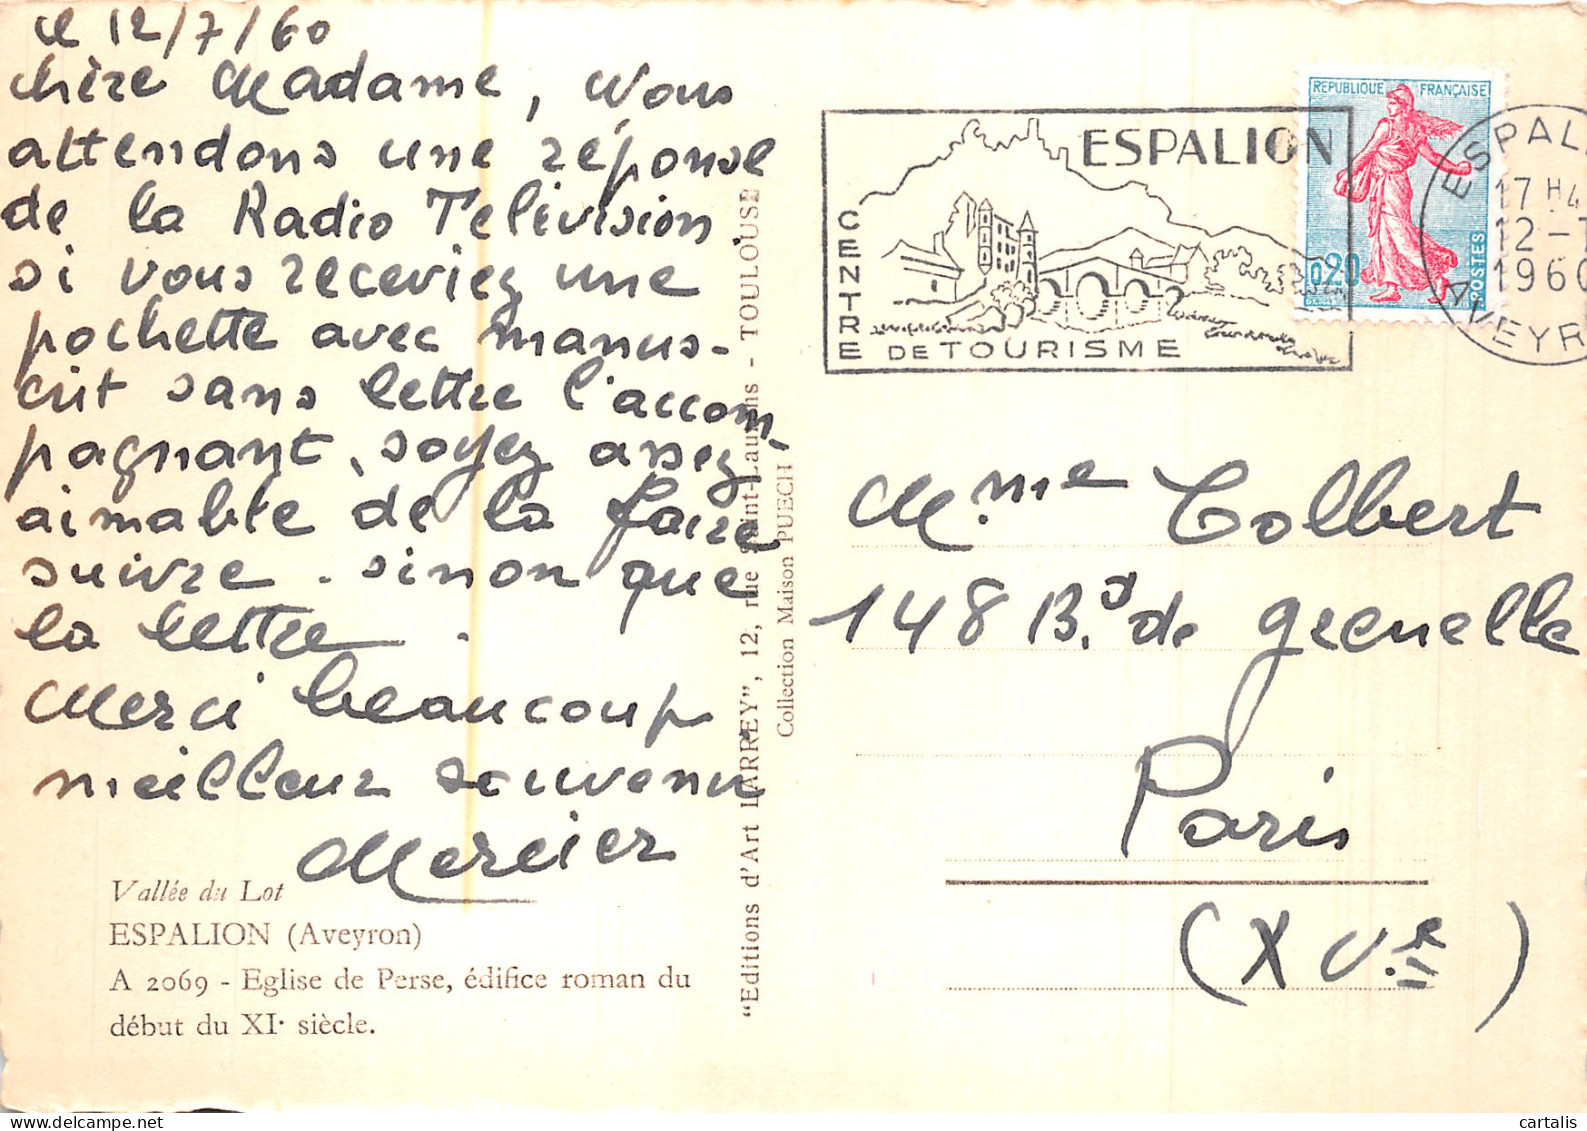 le 12/7/60
Chère Madame, Nous
attendons une réponse
de la Radio Télévision
si vous receviez une
pochette avec manus-
crit sans lettre l'accom-
pagnant, soyez assez
aimable de la faire
suivre. sinon que
la lettre.
Merci beaucoup
meilleur souvenir
Mercier
Vallée du Lot
ESPALION (Aveyron)
A 2069 - Eglise de Perse, édifice roman du
début du XIe siècle.
"Editions d'Art LARREY", 12, rue Saint-Laurens - TOULOUSE
Collection Maison PUECH
ESPALION
CENTRE
DE TOURISME
REPUBLIQUE FRANÇAISE
0,20
POSTES
ESPALI
17 H4
12-7
1960
AVEYR
Mme Colbert
148 Bd de Grenelle
Paris
(XVe)
cartalis